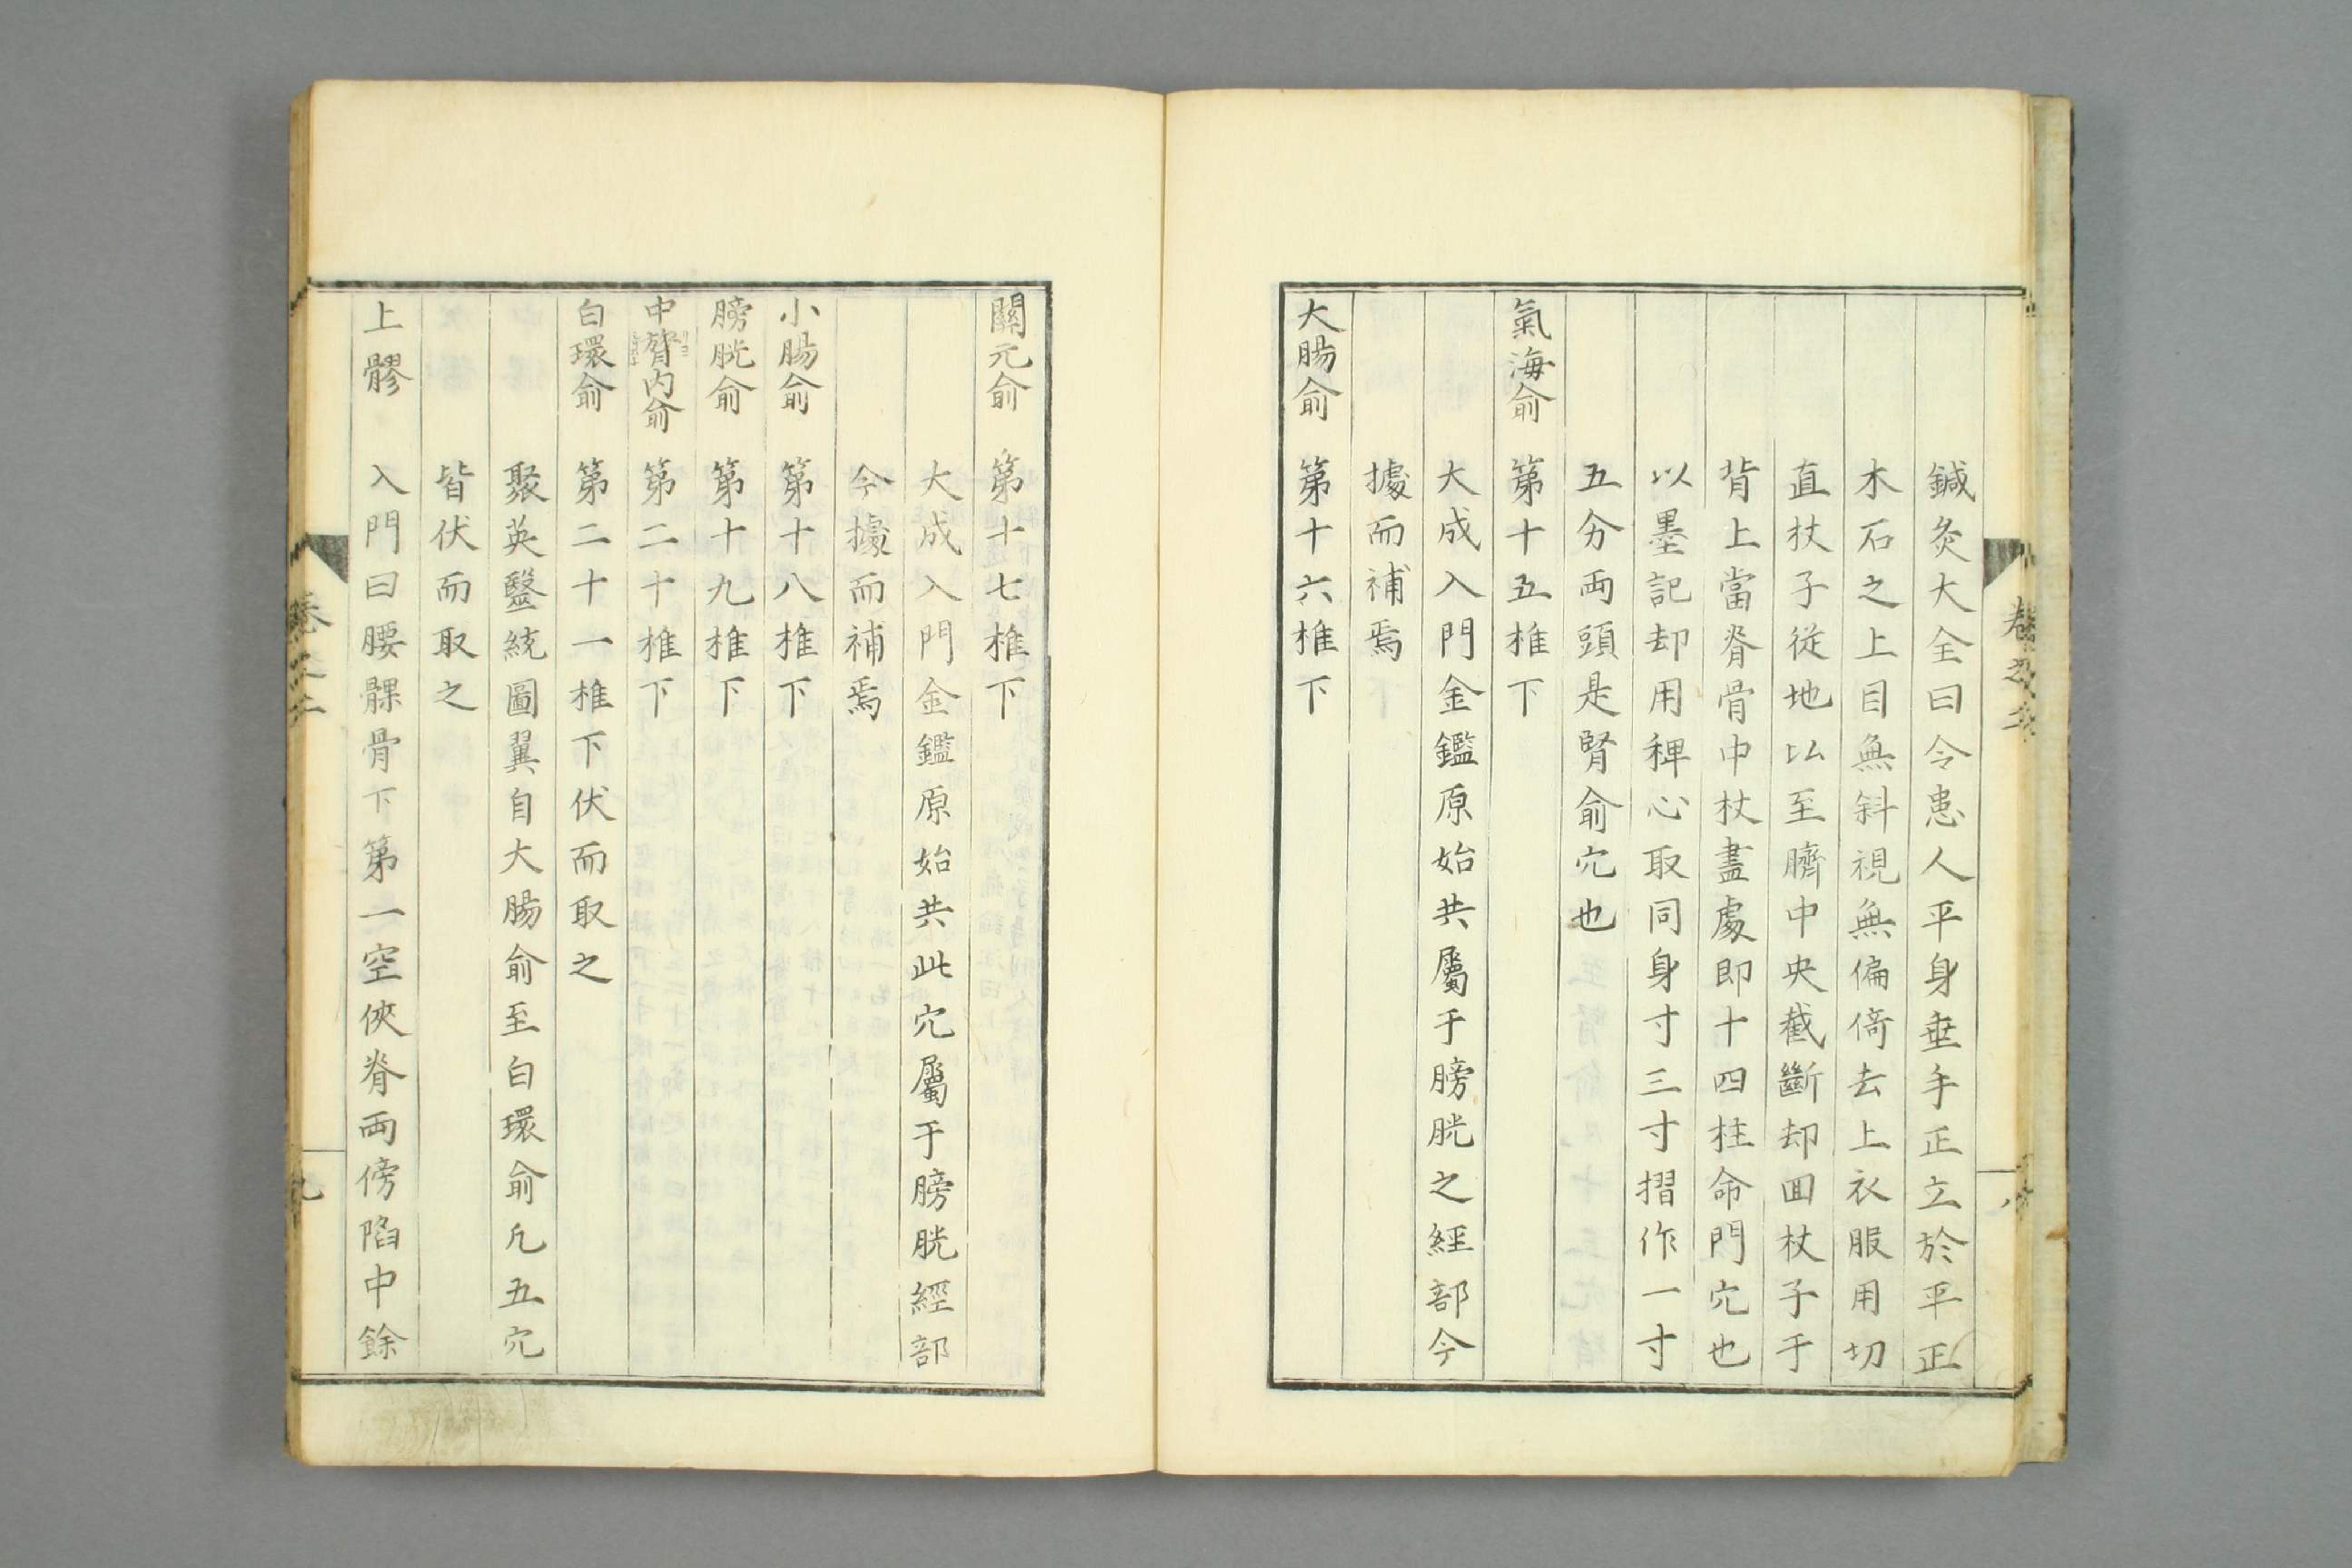 鍼灸大全曰令患人平身垂手正立於平正
木石之上目無斜視無偏倚去上衣服用切
直杖子從地以至臍中央截斷却囬杖子于
背上當脊骨中杖盡處即十四柱命門穴也
以墨記却用稗心取同身寸三寸摺作一寸
五分両頭是腎俞穴也
氣海俞 第十五椎下
大成入門金鑑原始共屬于膀胱之經部今
據而補焉
大腸俞 第十六椎下
關元俞 第十七椎下
大成入門金鑑原始共此穴屬于膀胱經部
今據而補焉
小腸俞 第十八椎下
膀胱俞 第十九椎下
中膂内俞 第二十椎下
白環俞 第二十一椎下伏而取之
聚英醫統圖翼自大腸俞至白環俞凢五穴
皆伏而取之
上髎 入門曰腰髁骨下第一空俠脊両傍陷中餘